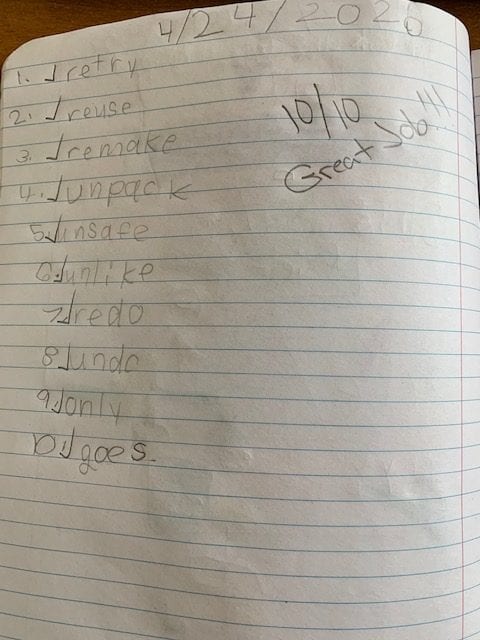 4/24/2020
1. √ retry
2. √ reuse
3. √ remake
10/10
Great Job!!!
4. √ unpack
5. √ unsafe
6. √ unlike
7. √ redo
8. √ undo
9. √ only
10. √ goes.